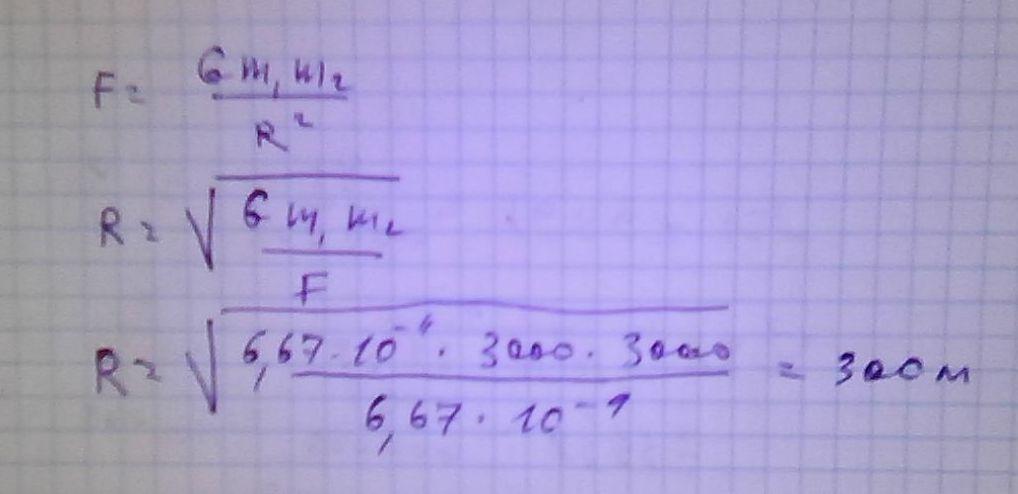 F = G m₁ m₂ / R²
R = √(G m₁ m₂ / F)
R = √(6,67 · 10⁻¹¹ · 3000 · 3000 / 6,67 · 10⁻⁹) = 300 м